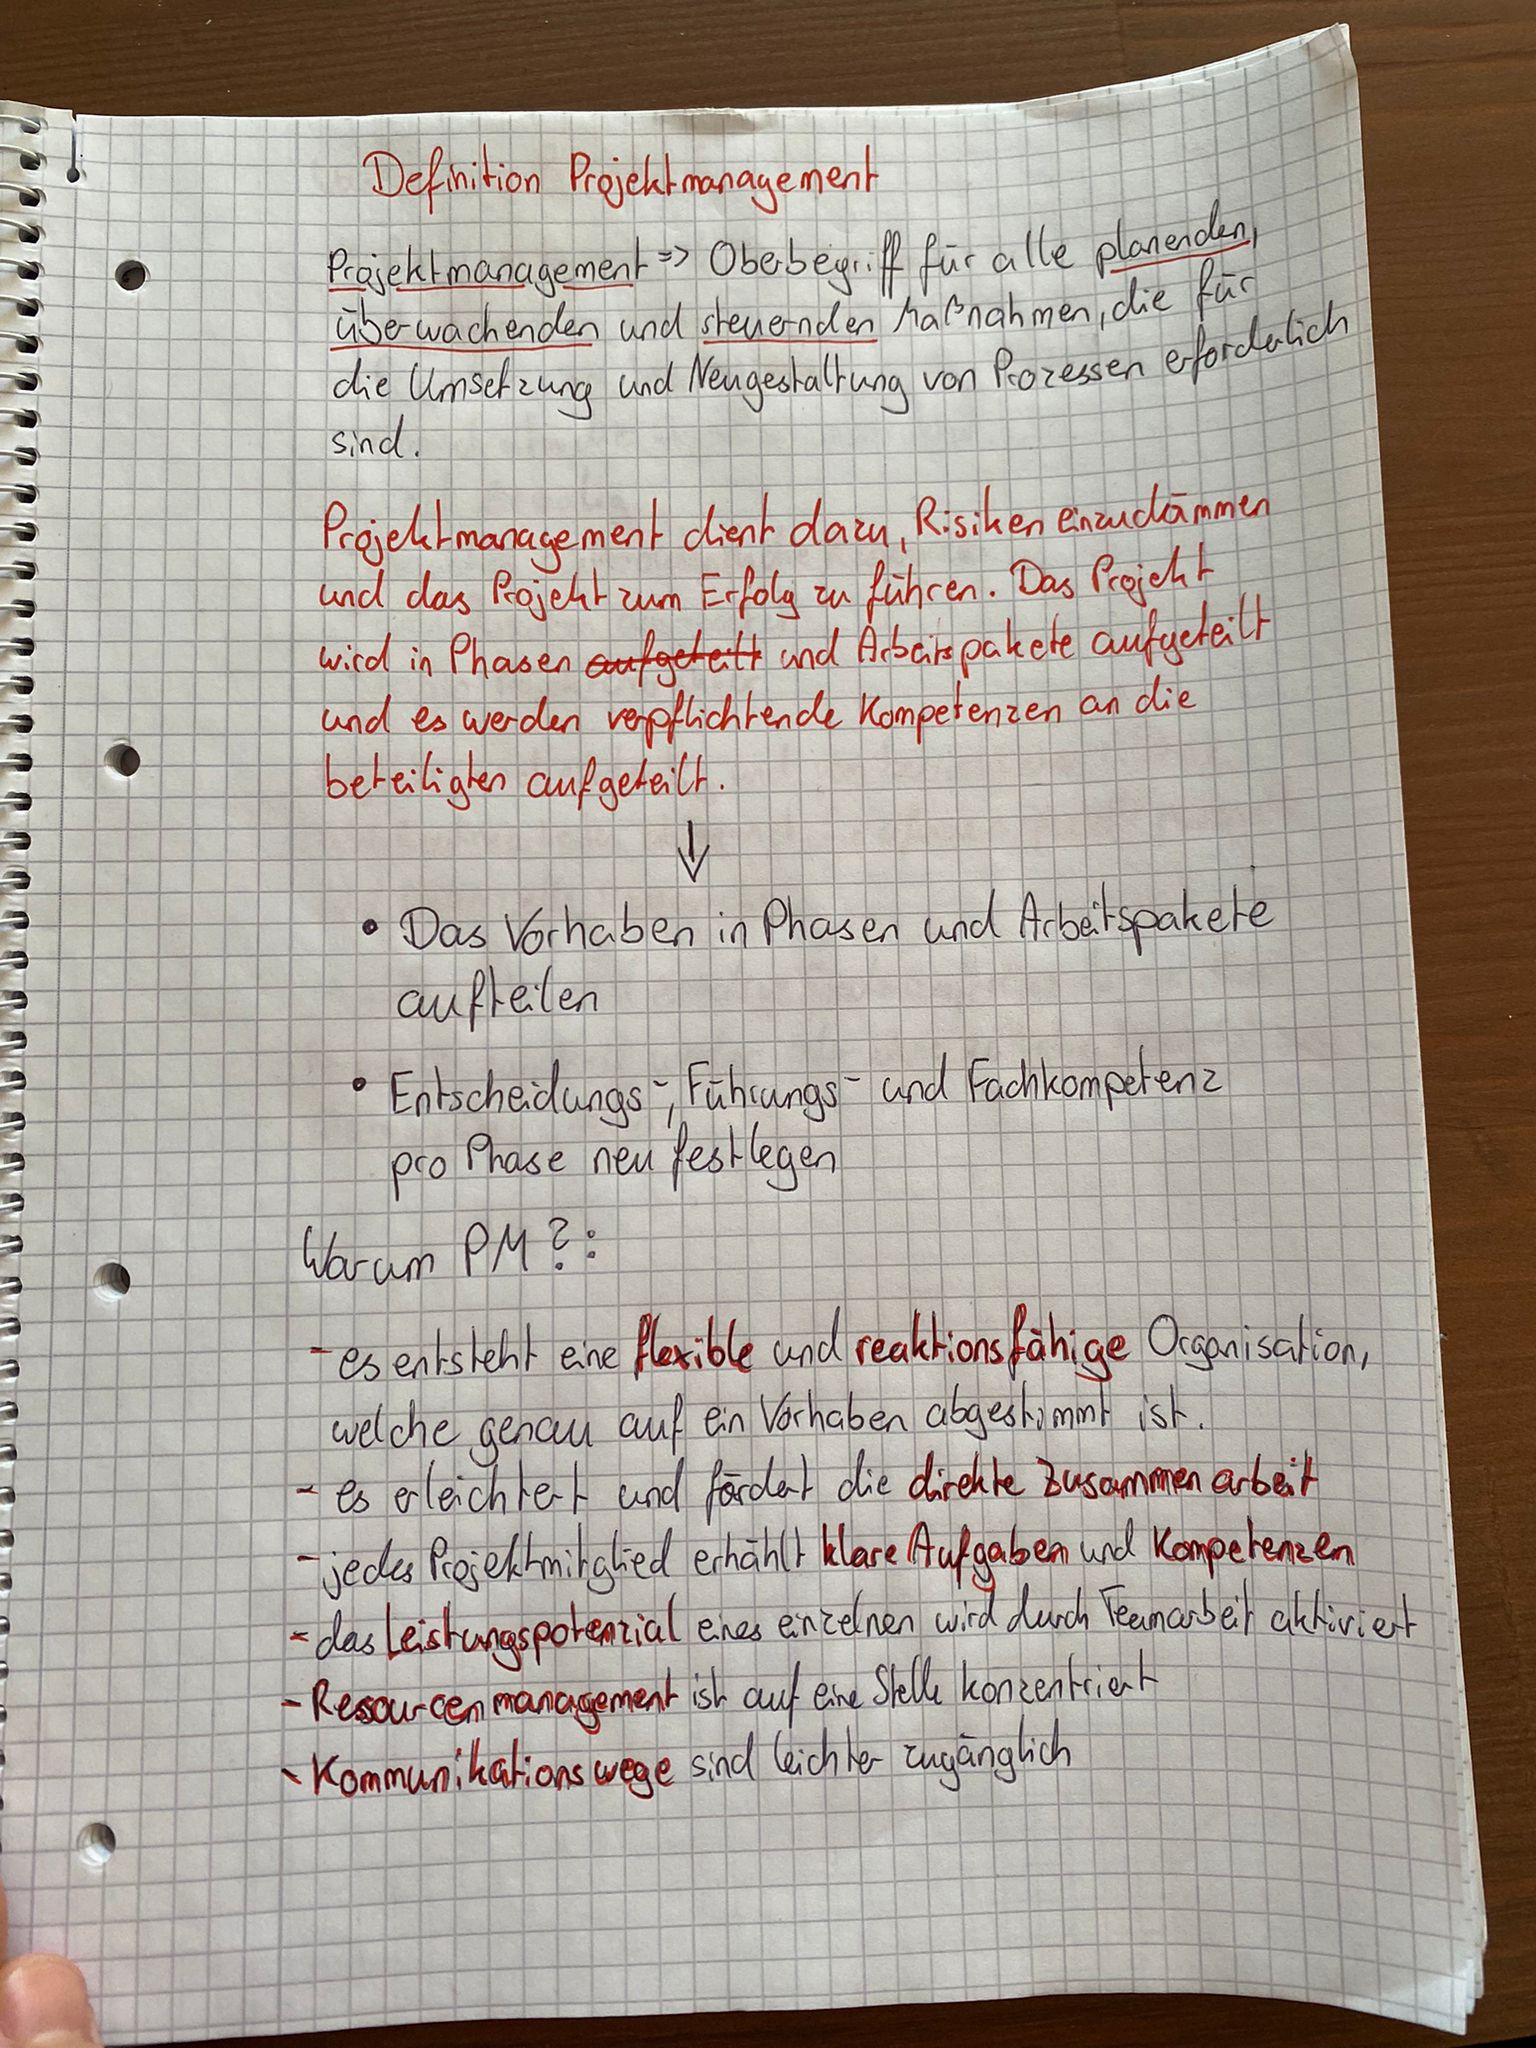 Definition Projektmanagement
Projektmanagement => Oberbegriff für alle planenden,
überwachenden und steuernden Maßnahmen, die für
die Umsetzung und Neugestaltung von Prozessen erforderlich
sind.
Projektmanagement dient dazu, Risiken einzudämmen
und das Projekt zum Erfolg zu führen. Das Projekt
wird in Phasen aufgeteilt und Arbeitspakete aufgeteilt
und es werden verpflichtende Kompetenzen an die
beteiligten aufgeteilt.
↓
• Das Vorhaben in Phasen und Arbeitspakete
aufteilen
• Entscheidungs-, Führungs- und Fachkompetenz
pro Phase neu festlegen
Warum PM?:
- es entsteht eine flexible und reaktionsfähige Organisation,
welche genau auf ein Vorhaben abgestimmt ist.
- es erleichtert und fördert die direkte Zusammenarbeit
- jedes Projektmitglied erhählt klare Aufgaben und Kompetenzen
- das Leistungspotenzial eines einzelnen wird durch Teamarbeit aktiviert
- Ressourcenmanagement ist auf eine Stelle konzentriert
- Kommunikationswege sind leichter zugänglich